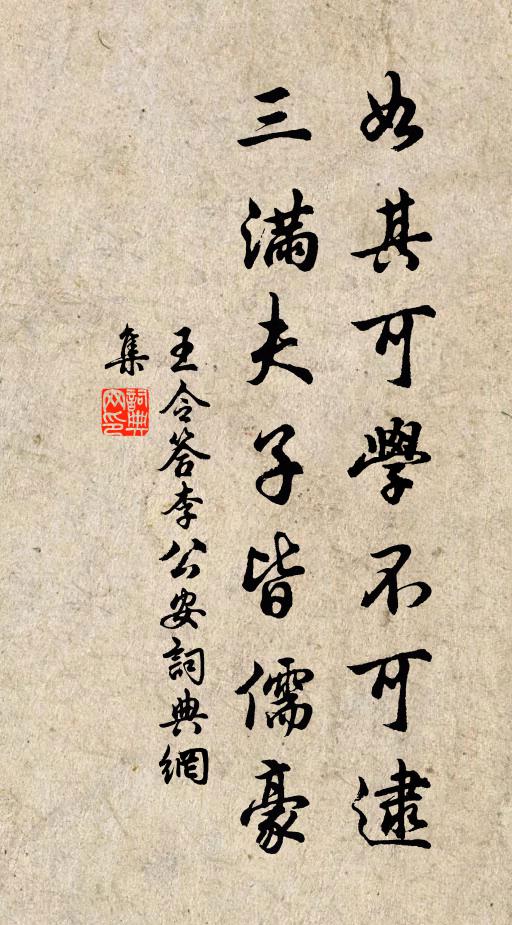 如其可學不可逮
三滿夫子皆儒豪
王令答李公安詞典網
集
詞典網印